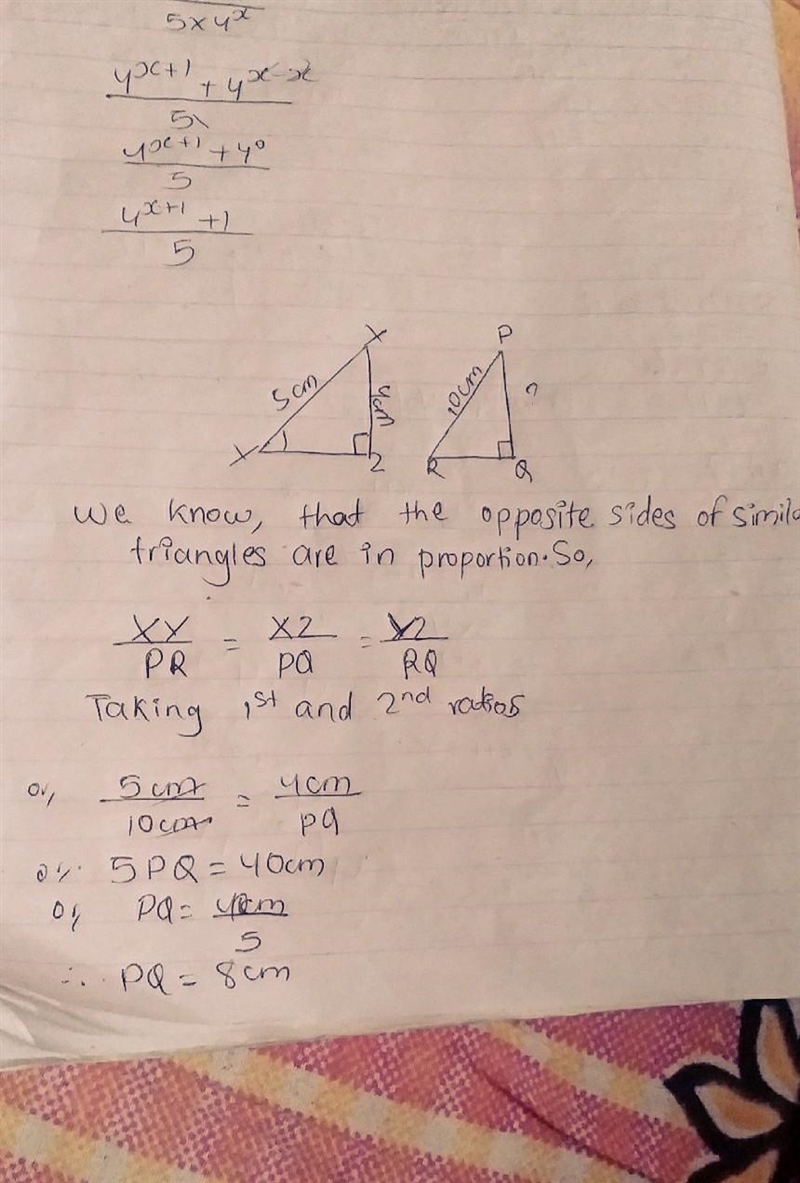 5×4ˣ
4ˣ⁺¹ + 4ˣ⁻ˣ
5
4ˣ⁺¹ + 4⁰
5
4ˣ⁺¹ + 1
5
X P
5cm 4cm 10cm ?
Y Z R Q
We know, that the opposite sides of simila
triangles are in proportion. So,
XY/PR = XZ/PQ = YZ/RQ
Taking 1st and 2nd ratios
or, 5cm/10cm = 4cm/PQ
or, 5PQ = 40cm
or, PQ = 40cm/5
∴ PQ = 8cm